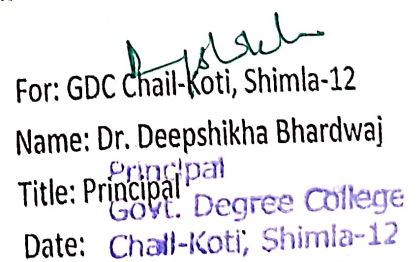 For: GDC Chail-Koti, Shimla-12
Name: Dr. Deepshikha Bhardwaj
Principal
Title: Principal
Govt. Degree College
Date: Chail-Koti, Shimla-12